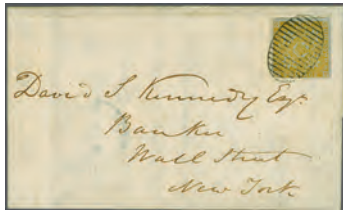 David S Kennedy Esqr
Banker
Wall Street
New York